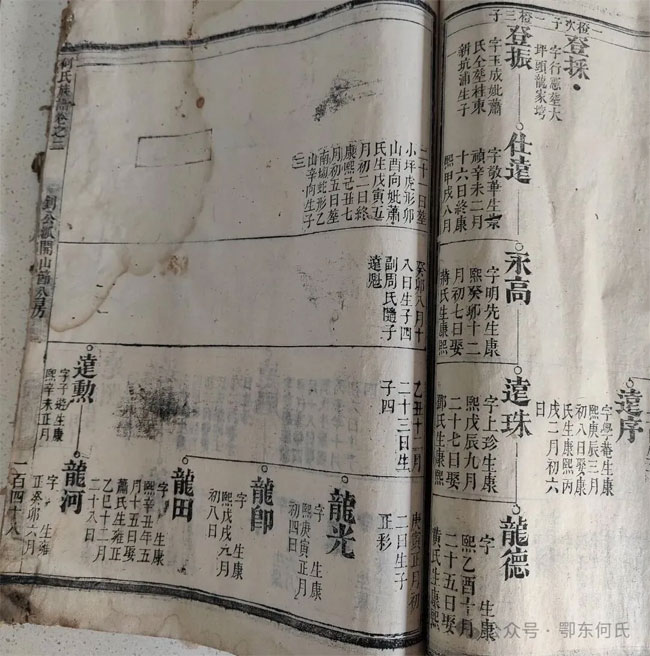 登採
字行憲塟大
坪頭龍家塆
登振
字玉成妣蕭
氏仝塟桂東
朝坑浦生子
仕達
字敬華生崇
禎辛未二月
十六日終康
熙甲戌八月
永高
字明先生康
熙癸卯十二
月初七日娶
蔣氏生康熙
達序
字學菴生康
熙庚辰三月
初八日娶康
氏生康熙丙
戌二月初六
日
達珠
字上珍生康
熙戊辰九月
二十七日娶
鄧氏生康熙
龍德
字 生康
熙乙酉十月
二十五日娶
黃氏生康熙
二十二日塟
小坪虎形卯
山酉向妣蕭
氏生戊寅五
月初二日終
康熙己丑七
月初五日塟
南塆蛇形乙
山辛向生子
三
癸卯八月十
八日生子四
副周氏隨子
達魁
乙丑十一月
二十三日生
子四
庚寅正月初
二日生子
正彩
龍光
字 生康
熙庚寅正月
初四日
龍即
字 生康
熙戊戌九月
初八日
龍田
字 生康
熙辛丑年五
月十五日娶
蕭氏生雍正
乙巳十二月
二十八日
達勲
字子 生康
熙辛未正月
龍河
字 生雍
正癸卯六月
何氏族譜卷之三
一百四十八
公众号·鄂东何氏